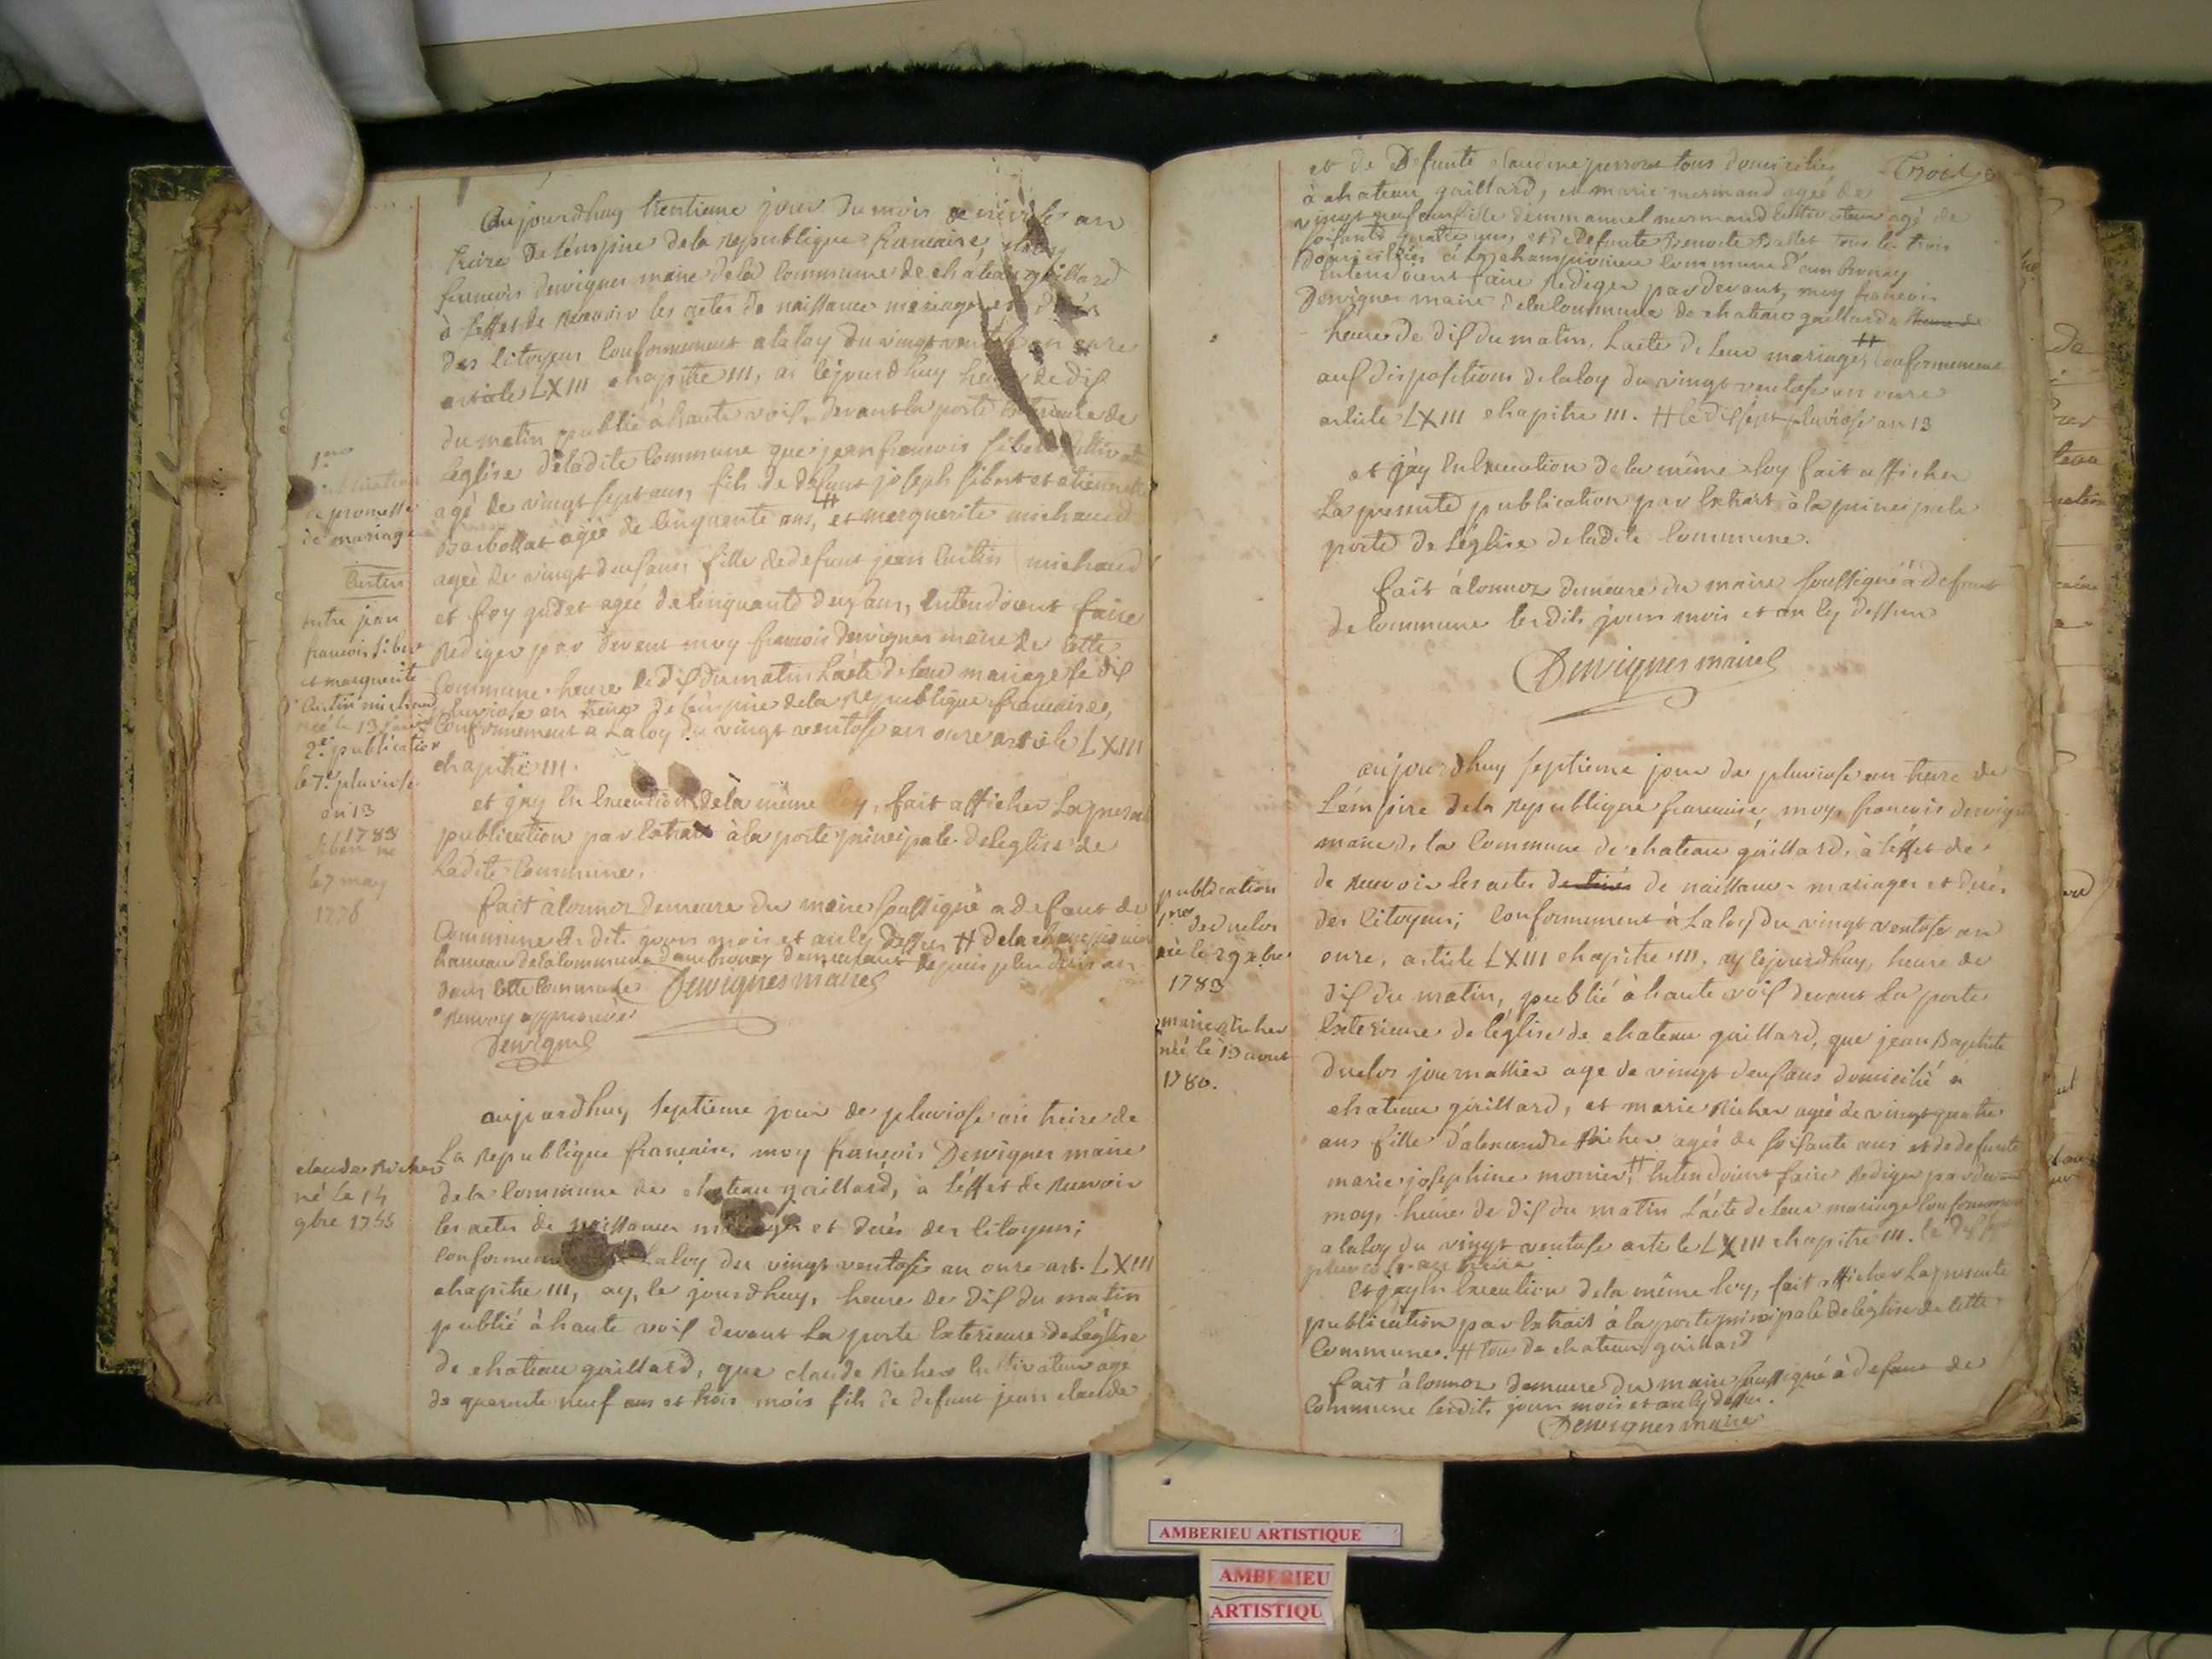 aujourdhuy trentieme jour du mois de nivose an
treize de l'empire de la republique francaise, moy
francois dervignes maire de la commune de chateau gaillard
à l'effet de recevoir les actes de naissance mariages et décés
des citoyens conformement a la loy du vingt ventose an onze
article LXIII chapitre III, ai cejourdhuy heure de dix
du matin publié à haute voix, devant la porte exterieure de
l'eglise de ladite commune que jean francois sibert cultivateur
agé de vingt sept ans, fils de defunt joseph sibert et etiennette
barbollat agée de cinquante ans, # et marguerite michaud
ageé de vingt deux ans fille de defunt jean curtin michaud
et foy godet ageé de cinquante deux ans, entendoient faire
rediger par devant moy francois dervignes maire de cette
commune heure de dix du matin l'acte de leur mariage le dix
pluviose an treize de l'empire de la republique francaise,
conformement a la loy du vingt ventose an onze article LXIII
chapitre III.
et j'ay en execution de la même loy, fait afficher la presente
publication par extrait à la porte principale de leglise de
ladite commune.
fait à lonnoz demeure du maire soussigné a defaut de
commune lesdits jours mois et an cy dessus # de la championiere
hameau de la commune d'ambronay demeurant depuis plus d'un an
dans cette commune Dervignes maire
renvoy approuvé
Dervignes
1ere
publication
de promesse
de mariage
Curtin
entre jean
francois sibert
et marguerite
Curtin michaud
née le 13
2e publication
le 7e pluviose
an 13
1783
sibert né
le 7 may
1778
aujourdhuy septieme jour de pluviose an treize de
la republique francaise, moy francois Dervignes maire
de la commune de chateau gaillard, a l'éffet de recevoir
les actes de naissances mariages et décés des citoyens;
conformement a la loy du vingt ventose an onze art. LXIII
chapitre III, ay, le jourdhuy, heure de dix du matin
publié à haute voix devant la porte exterieure de l'église
de chateau gaillard, que claude Richer cultivateur agé
de quarante neuf ans et trois mois fils de defunt jean claude
claude Richer
né le 14
9bre 1755
Trois
et de Defunte claudine perrone tous domiciliés
à chateau gaillard, et marie mermand ageé de
vingt neuf ans fille d'emmanuel mermand cultivateur agé de
soixante quatre ans, et de defunte benoite ballet tous les trois
domiciliés à la championiere commune d'ambronay
entendoient faire rediger par devant, moy francois
Dervignes maire de la commune de chateau gaillard
heure de dix du matin, l'acte de leur mariage, # conformement
aux dispositions de la loy du vingt ventose an onze
article LXIII chapitre III. # le dix sept pluviose an 13
et j'ay en execution de la même loy fait afficher
la presente publication par extrait à la principale
porte de l'église de ladite commune.
fait à lonnoz demeure du maire soussigné à defaut
de commune lesdits jours mois et an cy dessus
Dervignes maire
aujourdhuy septieme jour de pluviose an treize de
l'émpire de la republique francaise, moy, francois dervignes
maire de la commune de chateau gaillard, à l'éffet de
de recevoir les actes de naissance mariages et décés
des citoyens; conformement à la loy du vingt ventose an
onze, article LXIII chapitre III, ay cejourdhuy, heure de
dix du matin, publié à haute voix devant la porte
exterieure de l'église de chateau gaillard, que jean Baptiste
duclos journallier age de vingt deux ans domicilié a
chateau gaillard, et marie Richer ageé de vingt quatre
ans fille d'alexandre Richer ageé de soixante ans et de defunte
marie josephine monier, # entendoient faire rediger par devant
moy, heure de dix du matin l'acte de leur mariage conformement
a la loy du vingt ventose article LXIII chapitre III. le dix sept
pluviose an treize
et j'ay en execution de la même loy, fait afficher la presente
publication par extrait à la porte principale de léglise de cette
commune. # tous de chateau gaillard
fait à lonnoz demeure du maire soussigné à defaut de
commune lesdits jours mois et an cy dessus.
Dervignes maire
publication
1ere duclos
né le 29 xbre
1783
marie richer
née le 13 aout
1780.
AMBERIEU ARTISTIQUE
AMBERIEU
ARTISTIQU